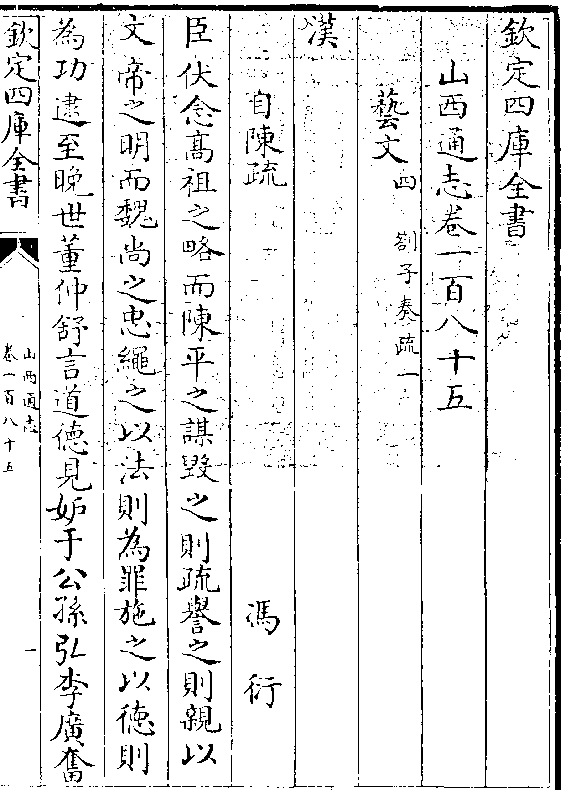 欽定四庫全書
山西通志卷一百八十五
藝文四 劄子奏疏一
漢
自陳疏 馮衍
臣伏念髙祖之略而陳平之謀毀之則疏譽之則親以
文帝之明而魏尚之忠繩之以法則為罪施之以徳則
為功逮至晚世董仲舒言道徳見妒于公孫弘李廣奮
欽定四庫全書
山西通志
卷一百八十五
一